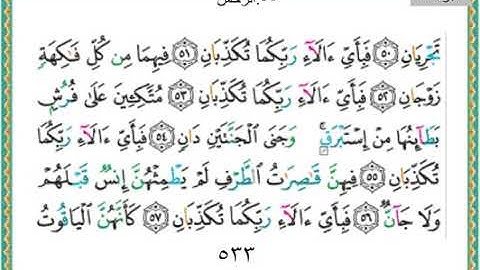 تَجۡرِيَانِ ۝٥٠ فَبِأَيِّ ءَالَآءِ رَبِّكُمَا تُكَذِّبَانِ ۝٥١ فِيهِمَا مِن كُلِّ فَٰكِهَةٖ
زَوۡجَانِ ۝٥٢ فَبِأَيِّ ءَالَآءِ رَبِّكُمَا تُكَذِّبَانِ ۝٥٣ مُتَّكِـِٔينَ عَلَىٰ فُرُشِۭ
بَطَآئِنُهَا مِنۡ إِسۡتَبۡرَقٖۚ وَجَنَى ٱلۡجَنَّتَيۡنِ دَانٖ ۝٥٤ فَبِأَيِّ ءَالَآءِ رَبِّكُمَا
تُكَذِّبَانِ ۝٥٥ فِيهِنَّ قَٰصِرَٰتُ ٱلطَّرۡفِ لَمۡ يَطۡمِثۡهُنَّ إِنسٞ قَبۡلَهُمۡ
وَلَا جَآنّٞ ۝٥٦ فَبِأَيِّ ءَالَآءِ رَبِّكُمَا تُكَذِّبَانِ ۝٥٧ كَأَنَّهُنَّ ٱلۡيَاقُوتُ
٥٣٣